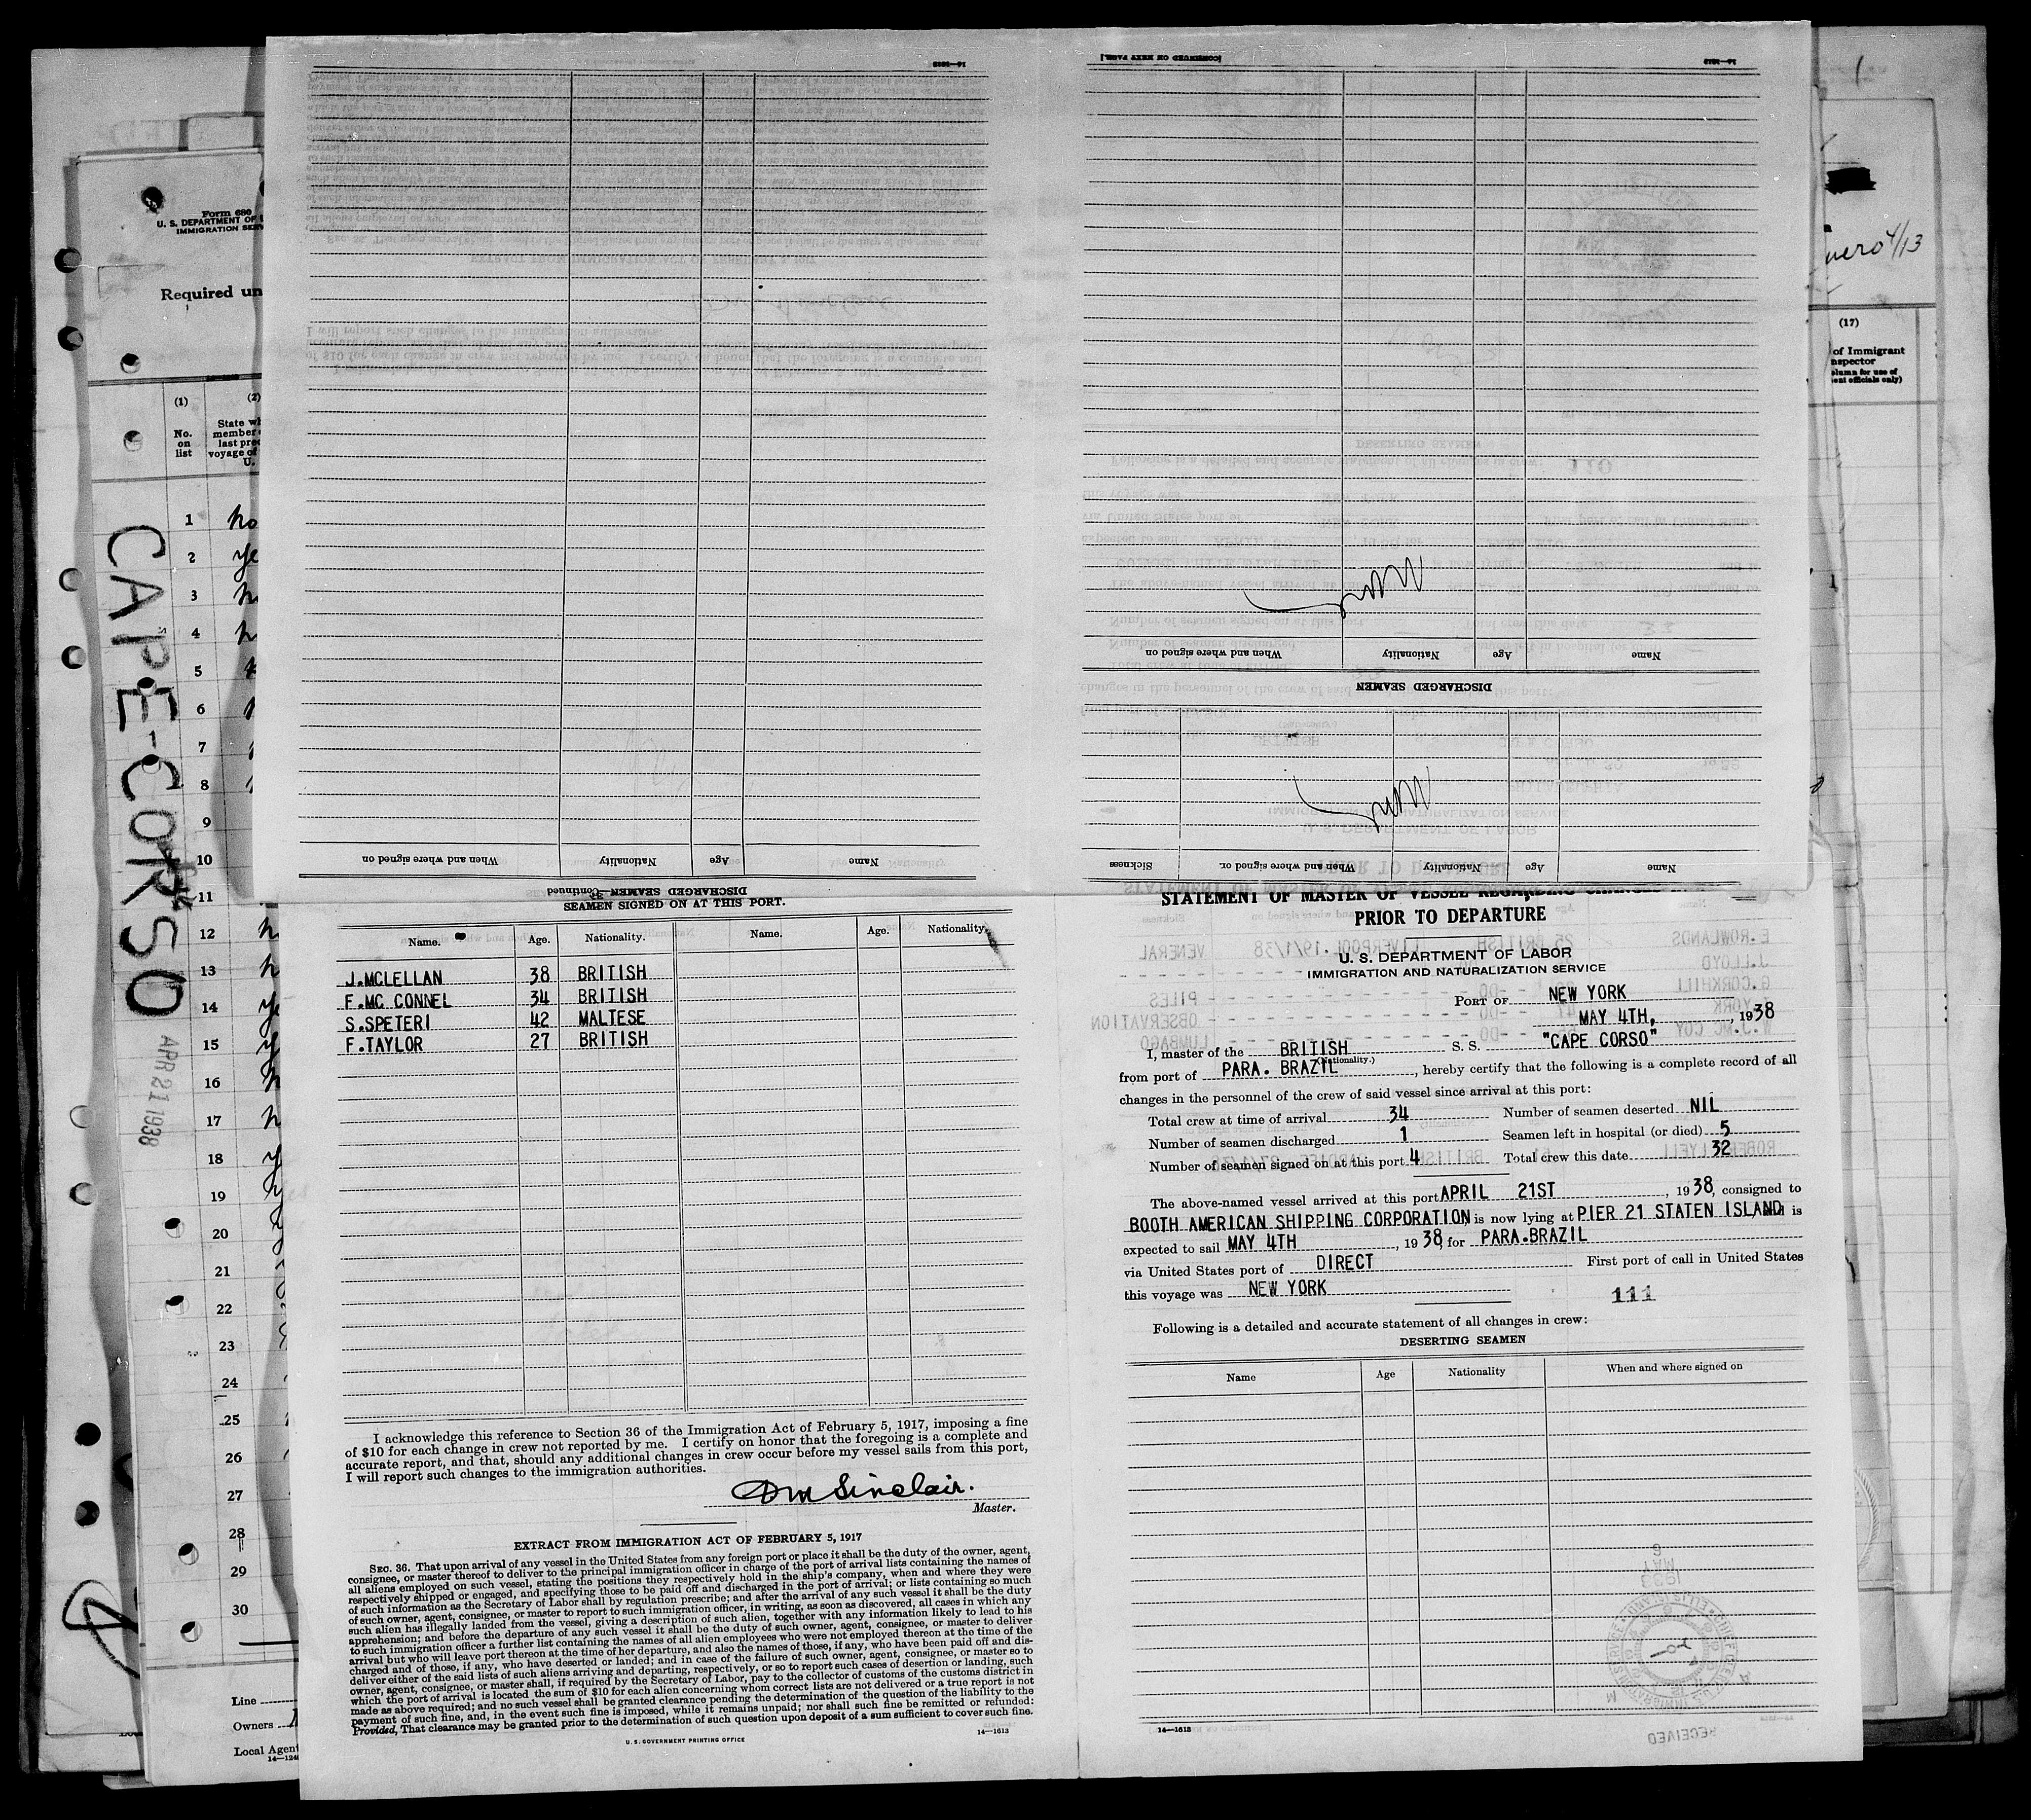 Form 680
U. S. DEPARTMENT OF
IMMIGRATION SERV
Required un
(1)
No.
on
list
(2)
State wh
member
last prec
voyage of
U.
1
2
3
4
5
6
7
8
9
10
11
12
13
14
15
16
17
18
19
20
21
22
23
24
25
26
27
28
29
30
Line
Owners
Local Agent
CAPE-CORSO
APR 21 1938
4/13
(17)
of Immigrant
nspector
olumn for use of
ent officials only)
14—1613
[CONTINUED ON NEXT PAGE.]
14—1613
When and where signed on
Nationality
Age
Name
DISCHARGED SEAMEN
Sickness
When and where signed on.
Nationality
Age
Name
When and where signed on
Nationality
Age
Name
DISCHARGED SEAMEN—Continued
SEAMEN SIGNED ON AT THIS PORT.
Name. Age. Nationality. Name. Age. Nationality.
J.MCLELLAN 38 BRITISH
F.MC CONNEL 34 BRITISH
S.SPETERI 42 MALTESE
F.TAYLOR 27 BRITISH
I acknowledge this reference to Section 36 of the Immigration Act of February 5, 1917, imposing a fine
of $10 for each change in crew not reported by me. I certify on honor that the foregoing is a complete and
accurate report, and that, should any additional changes in crew occur before my vessel sails from this port,
I will report such changes to the immigration authorities.
DM Sinclair.
Master.
EXTRACT FROM IMMIGRATION ACT OF FEBRUARY 5, 1917
SEC. 36. That upon arrival of any vessel in the United States from any foreign port or place it shall be the duty of the owner, agent,
consignee, or master thereof to deliver to the principal immigration officer in charge of the port of arrival lists containing the names of
all aliens employed on such vessel, stating the positions they respectively hold in the ship's company, when and where they were
respectively shipped or engaged, and specifying those to be paid off and discharged in the port of arrival; or lists containing so much
of such information as the Secretary of Labor shall by regulation prescribe; and after the arrival of any such vessel it shall be the duty
of such owner, agent, consignee, or master to report to such immigration officer, in writing, as soon as discovered, all cases in which any
such alien has illegally landed from the vessel, giving a description of such alien, together with any information likely to lead to his
apprehension; and before the departure of any such vessel it shall be the duty of such owner, agent, consignee, or master to deliver
to such immigration officer a further list containing the names of all alien employees who were not employed thereon at the time of the
arrival but who will leave port thereon at the time of her departure, and also the names of those, if any, who have been paid off and dis-
charged and of those, if any, who have deserted or landed; and in case of the failure of such owner, agent, consignee, or master so to
deliver either of the said lists of such aliens arriving and departing, respectively, or so to report such cases of desertion or landing, such
owner, agent, consignee, or master shall, if required by the Secretary of Labor, pay to the collector of customs of the customs district in
which the port of arrival is located the sum of $10 for each alien concerning whom correct lists are not delivered or a true report is not
made as above required; and no such vessel shall be granted clearance pending the determination of the question of the liability to the
payment of such fine, and, in the event such fine is imposed, while it remains unpaid; nor shall such fine be remitted or refunded:
Provided, That clearance may be granted prior to the determination of such question upon deposit of a sum sufficient to cover such fine.
14—1613
U. S. GOVERNMENT PRINTING OFFICE
STATEMENT OF MASTER OF VESSEL REGARDING CHANGES
PRIOR TO DEPARTURE
U. S. DEPARTMENT OF LABOR
IMMIGRATION AND NATURALIZATION SERVICE
PORT OF NEW YORK
MAY 4TH, , 1938
I, master of the BRITISH S. S. "CAPE CORSO"
(Nationality.)
from port of PARA. BRAZIL , hereby certify that the following is a complete record of all
changes in the personnel of the crew of said vessel since arrival at this port:
Total crew at time of arrival 34 Number of seamen deserted NIL
Number of seamen discharged 1 Seamen left in hospital (or died) 5
Number of seamen signed on at this port 4 Total crew this date 32
The above-named vessel arrived at this port APRIL 21ST , 1938, consigned to
BOOTH AMERICAN SHIPPING CORPORATION, is now lying at PIER 21 STATEN ISLAND, and is
expected to sail MAY 4TH , 1938, for PARA.BRAZIL
via United States port of DIRECT First port of call in United States
this voyage was NEW YORK
111
Following is a detailed and accurate statement of all changes in crew:
DESERTING SEAMEN
Name Age Nationality When and where signed on
14—1613
RECEIVED